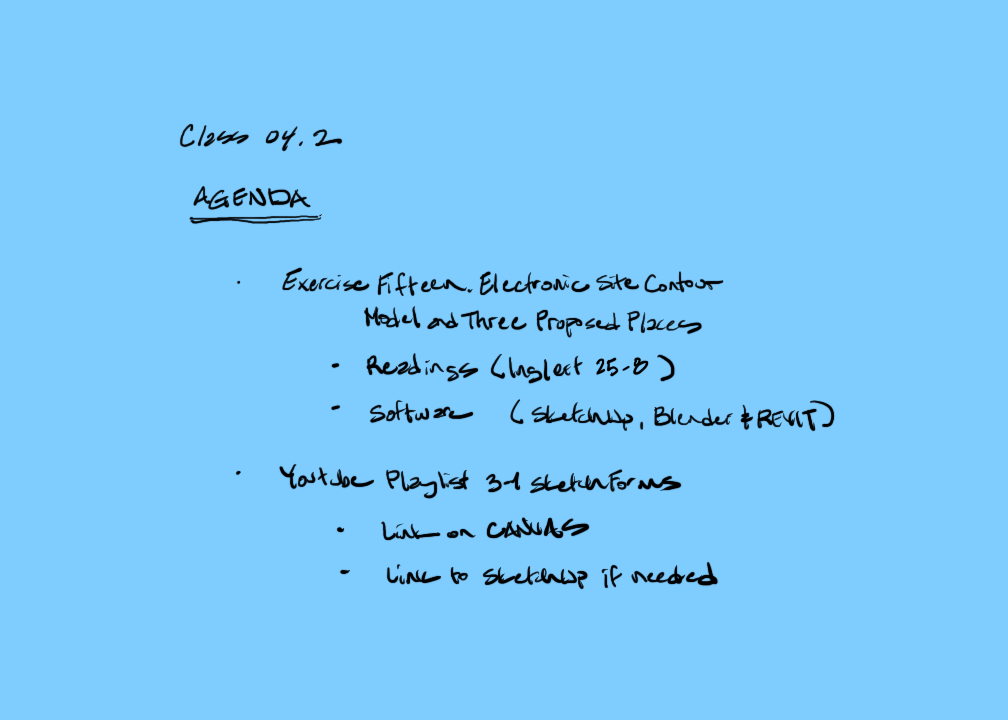 Class 04.2
AGENDA
· Exercise Fifteen. Electronic Site Contour
Model and Three Proposed Places
- Readings (Inglect 25-8)
- Software (SketchUp, Blender & REVIT)
· Youtube Playlist 3-1 SketchForms
· Link on CANVAS
- Link to SketchUp if needed